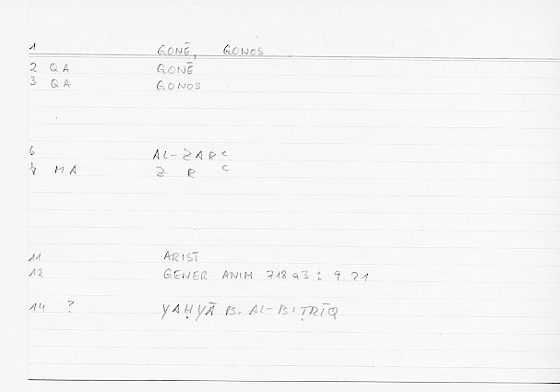 1 GONĒ, GONOS
2 QA GONĒ
3 QA GONOS
6 AL-ZARʿ
7 MA Z R ʿ
11 ARIST
12 GENER ANIM 718a3 : 9.21
14 ? YAḤYĀ B. AL-BIṬRĪQ